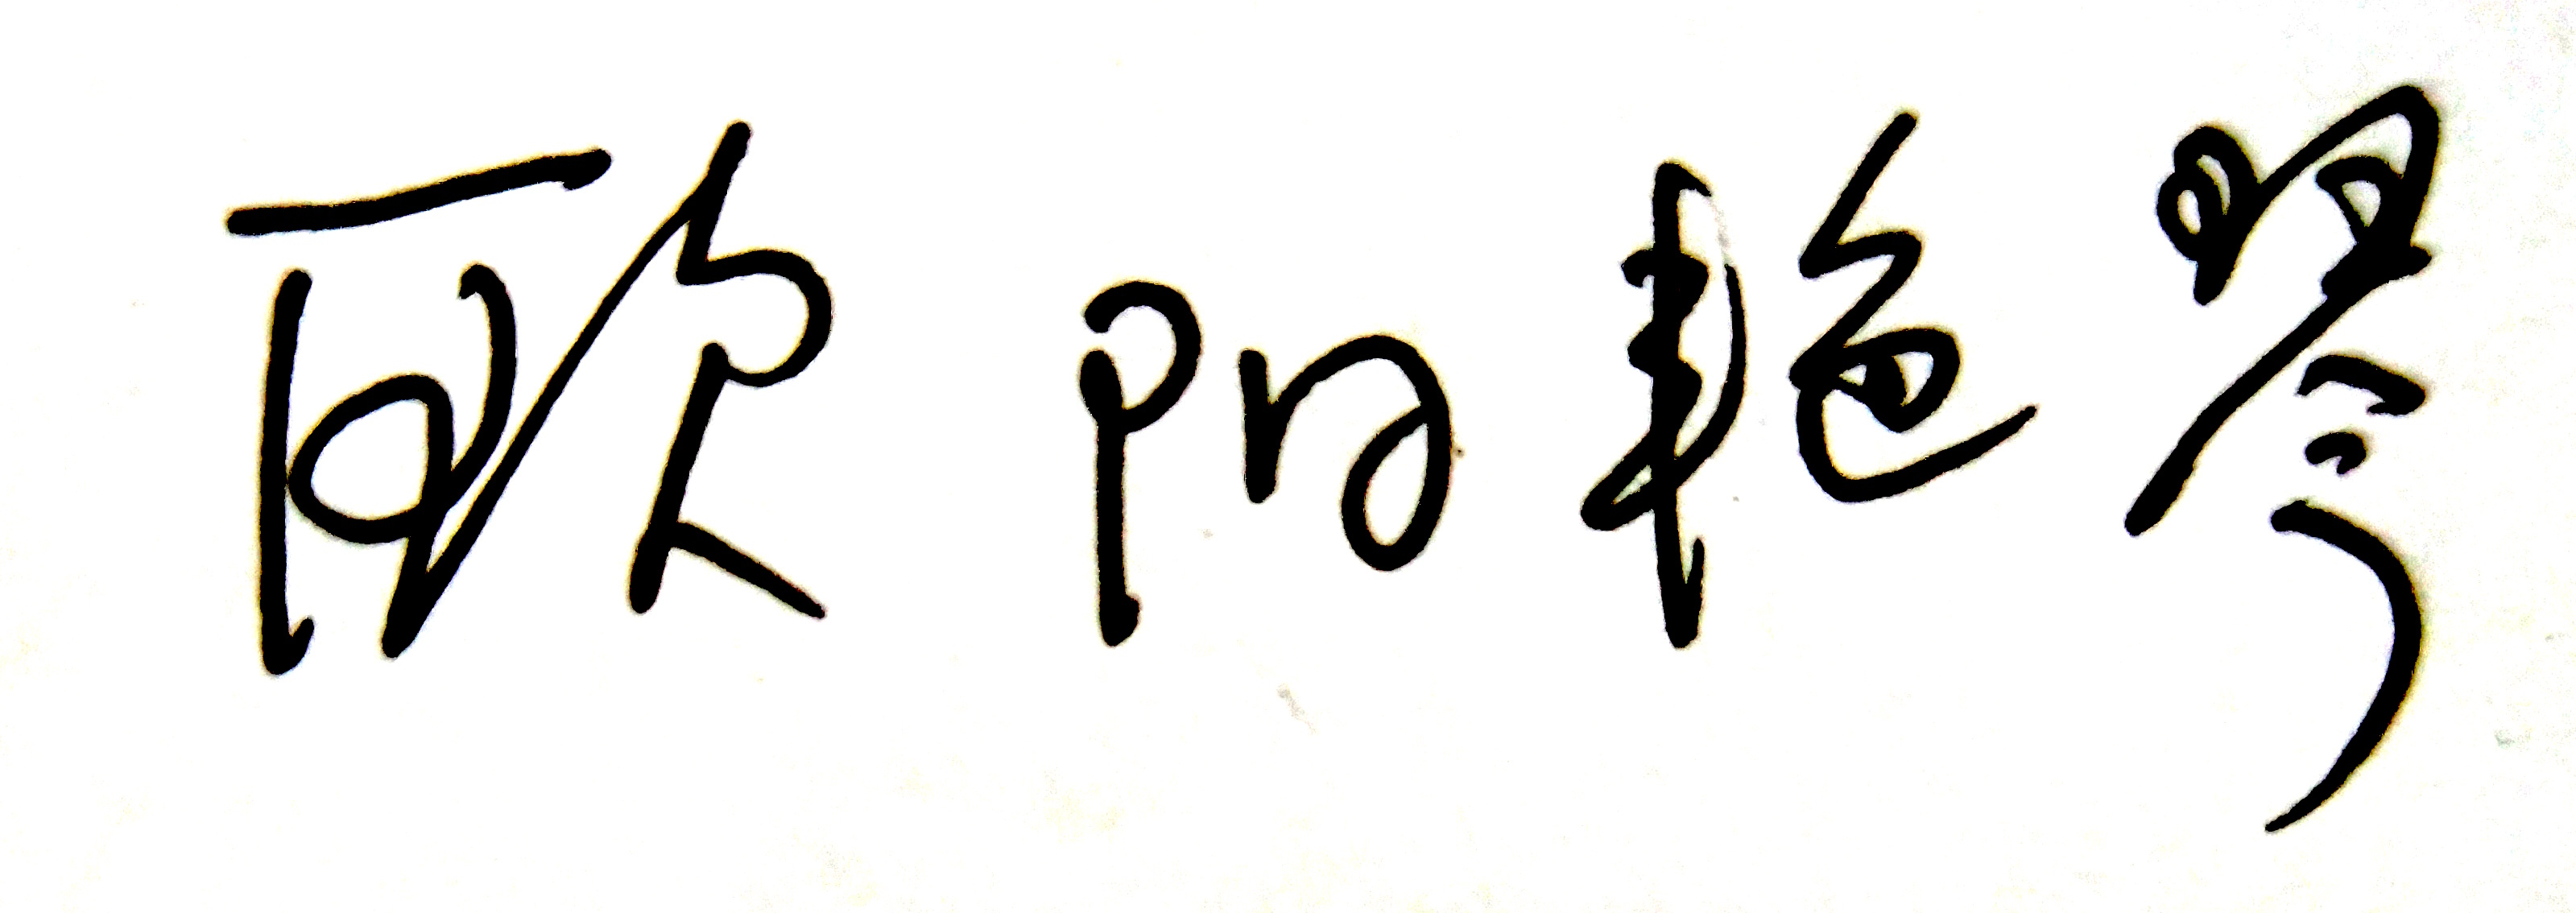 欧阳艳琴